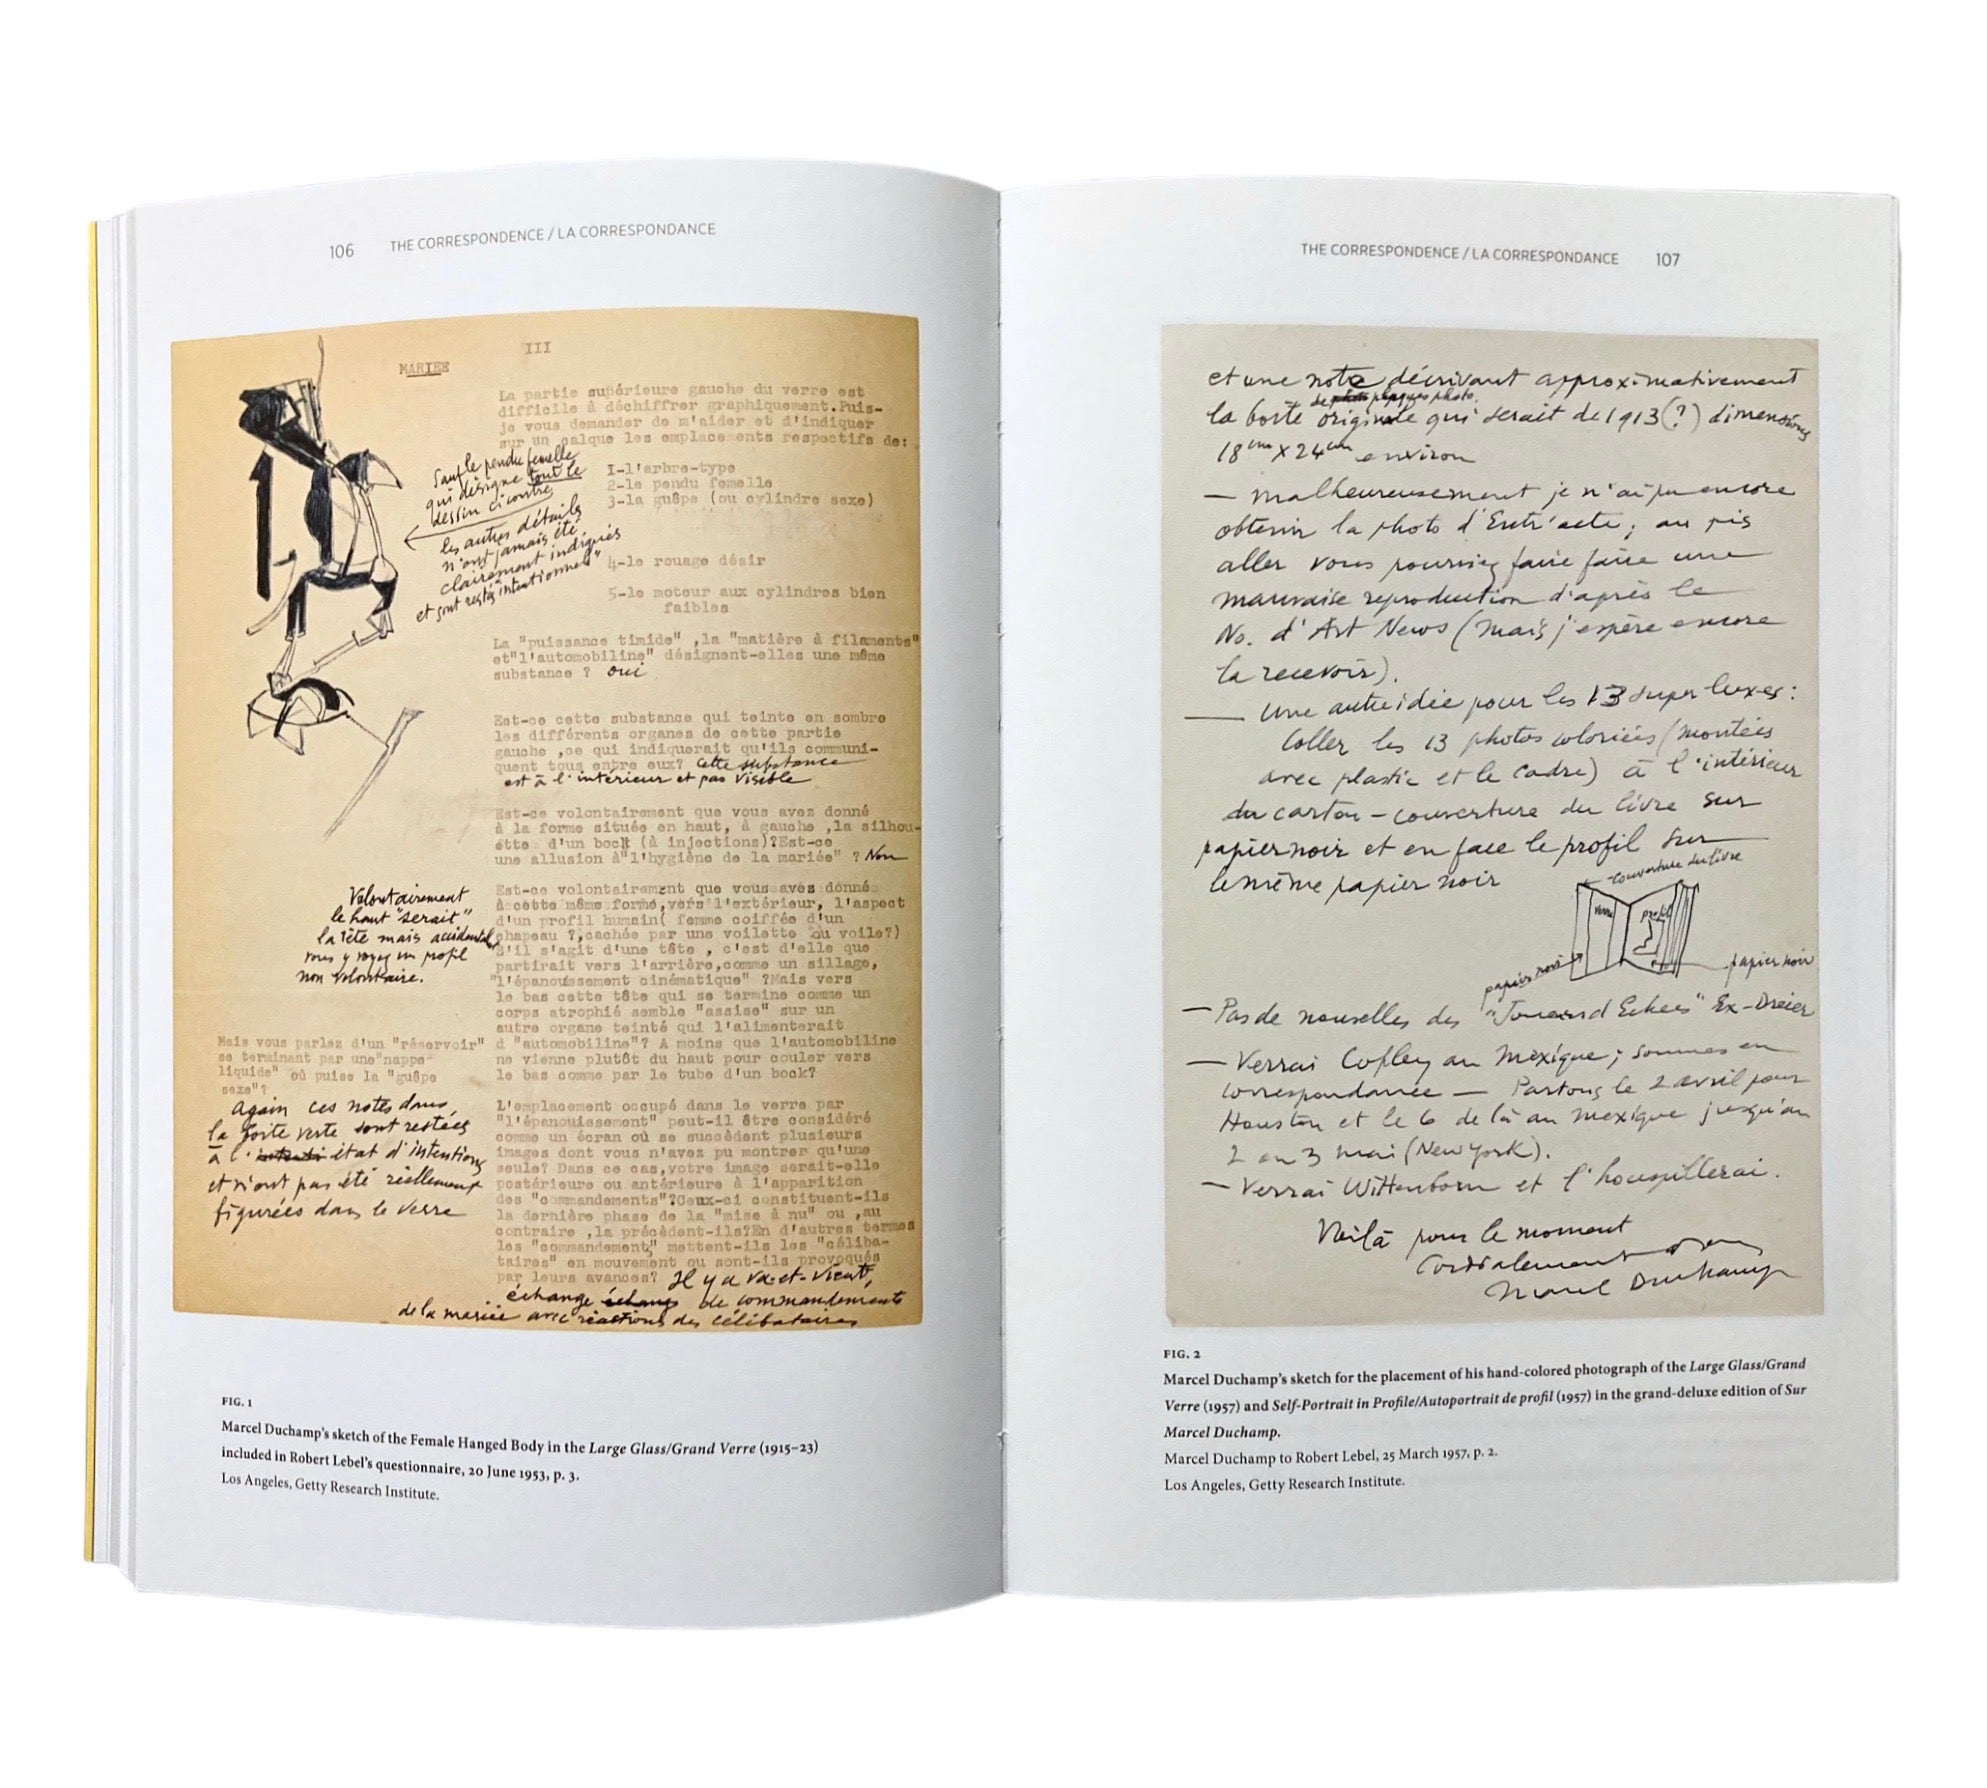 106 THE CORRESPONDENCE / LA CORRESPONDANCE
III
MARIEE
La partie supérieure gauche du verre est
difficile à déchiffrer graphiquement.Puis-
je vous demander de m'aider et d'indiquer
sur un calque les emplacements respectifs de:
1-l'arbre-type
2-le pendu femelle
3-la guêpe (ou cylindre sexe)
4-le rouage désir
5-le moteur aux cylindres bien
faibles
Sauf le pendu femelle
qui désigne tout le
dessin ci contre
les autres détails
n'ont jamais été
clairement indiqués
et sont restés intentionnels"
La "puissance timide" ,la "matière à filaments"
et"l'automobiline" désignent-elles une même
substance ? oui
Est-ce cette substance qui teinte en sombre
les différents organes de cette partie
gauche ,ce qui indiquerait qu'ils communi-
quent tous entre eux? Cette substance
est à l'intérieur et pas visible
Est-ce volontairement que vous avez donné
à la forme située en haut, à gauche ,la silhou-
ette d'un bock (à injections)?Est-ce
une allusion à"l'hygiène de la mariée" ? Non
Est-ce volontairement que vous avez donné
à cette même forme,vers l'extérieur, l'aspect
d'un profil humain( femme coiffée d'un
chapeau ?,cachée par une voilette ou voile?)
S'il s'agit d'une tête , c'est d'elle que
partirait vers l'arrière,comme un sillage,
"l'épanouissement cinématique" ?Mais vers
le bas cette tête qui se termine comme un
corps atrophié semble "assise" sur un
autre organe teinté qui l'alimenterait
d "automobiline"? A moins que l'automobiline
ne vienne plutôt du haut pour couler vers
le bas comme par le tube d'un bock?
Volontairement
le haut "serait"
la tête mais accidentel
vous y voyez un profil
non volontaire.
Mais vous parlez d'un "réservoir"
se terminant par une"nappe
liquide" où puise la "guêpe
sexe"?
Again ces notes dans
la boite verte sont restées
à l' état d'intentions
et n'ont pas été réellement
figurées dans le verre
L'emplacement occupé dans le verre par
"l'épanouissement" peut-il être considéré
comme un écran où se succèdent plusieurs
images dont vous n'avez pu montrer qu'une
seule? Dans ce cas,votre image serait-elle
postérieure ou antérieure à l'apparition
des "commandements"?Ceux-ci constituent-ils
la dernière phase de la "mise à nu" ou ,au
contraire ,la précèdent-ils?En d'autres termes
les "commandement" mettent-ils les "céliba-
taires" en mouvement ou sont-ils provoqués
par leurs avances? Il y a va-et-vient,
échange échange de commandements
de la mariée avec réactions des célibataires
FIG. 1
Marcel Duchamp's sketch of the Female Hanged Body in the Large Glass/Grand Verre (1915–23)
included in Robert Lebel's questionnaire, 20 June 1953, p. 3.
Los Angeles, Getty Research Institute.
THE CORRESPONDENCE / LA CORRESPONDANCE 107
et une note décrivant approximativement
la boîte originale qui serait de 1913 (?) dimensions
18cm x 24cm environ
— Malheureusement je n'ai pu encore
obtenir la photo d'Entr'acte; au pis
aller vous pourriez faire faire une
mauvaise reproduction d'après le
No. d'Art News (mais j'espère encore
la recevoir).
— Une autre idée pour les 13 super luxes:
Coller les 13 photos coloriées (montées
avec plastic et le cadre) à l'intérieur
du carton-couverture du livre sur
papier noir et en face le profil sur
le même papier noir
couverture du livre
verre
profil
papier noir
papier noir
— Pas de nouvelles des "Joueurs d'Echecs" Ex-Dreier
— Verrai Copley au Mexique; sommes en
correspondance — Partons le 2 avril pour
Houston et le 6 de là au Mexique jusqu'au
2 ou 3 mai (New York).
— Verrai Wittenborn et l'houspillerai.
Voilà pour le moment
Cordialement
Marcel Duchamp
FIG. 2
Marcel Duchamp's sketch for the placement of his hand-colored photograph of the Large Glass/Grand
Verre (1957) and Self-Portrait in Profile/Autoportrait de profil (1957) in the grand-deluxe edition of Sur
Marcel Duchamp.
Marcel Duchamp to Robert Lebel, 25 March 1957, p. 2.
Los Angeles, Getty Research Institute.